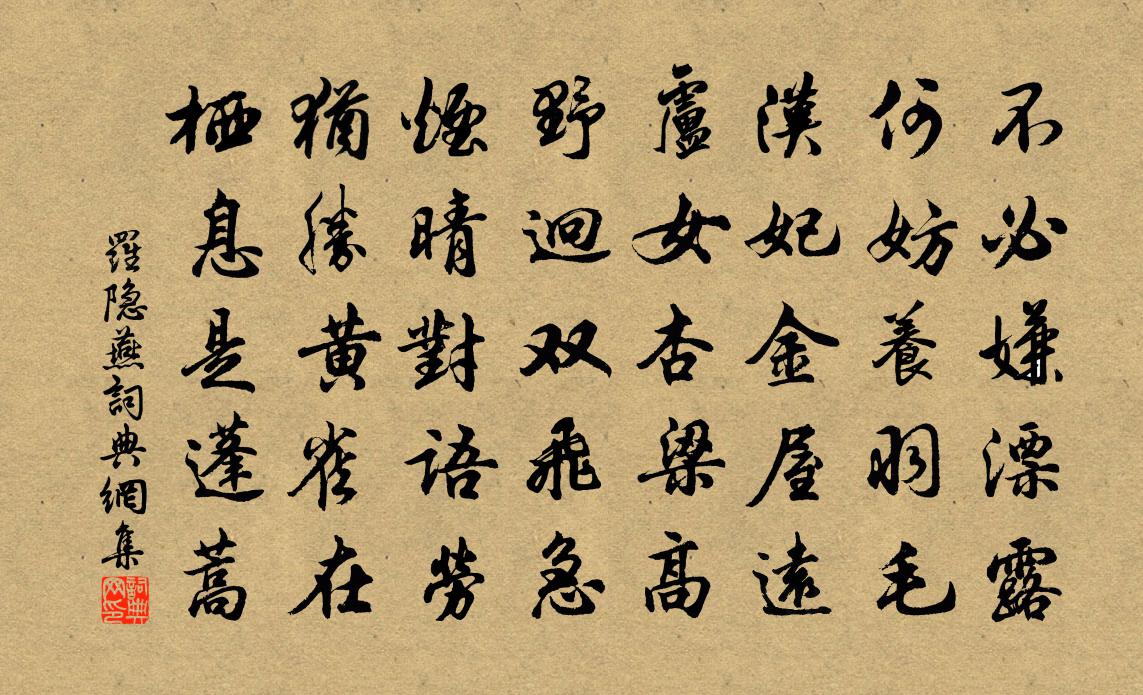 不必嫌漂露
何妨養羽毛
漢妃金屋遠
盧女杏梁高
野迥双飛急
煙晴對語勞
猶勝黃雀在
栖息是蓬蒿
羅隐燕詞典網集
詞典网印